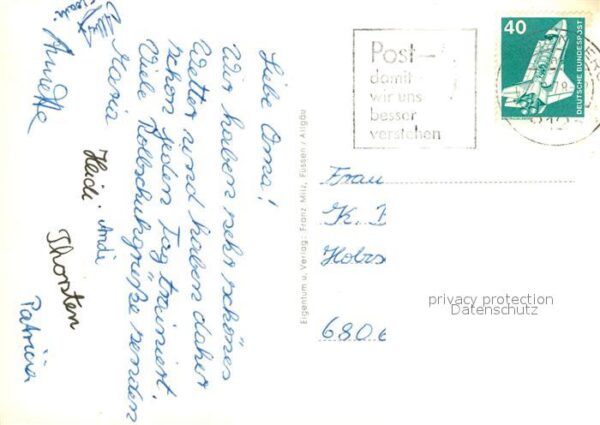 Liebe Oma!
Wir haben sehr schönes
Wetter und haben daher
schon jeden Tag trainiert.
Viele Rollschuhgrüße senden
Maria Heidi. Andi Thorsten Patricia
Annette
Eigentum u. Verlag: Franz Milz, Füssen / Allgäu
Post-
damit
wir uns
besser
verstehen
40
DEUTSCHE BUNDESPOST
Frau
K.
privacy protection
Datenschutz